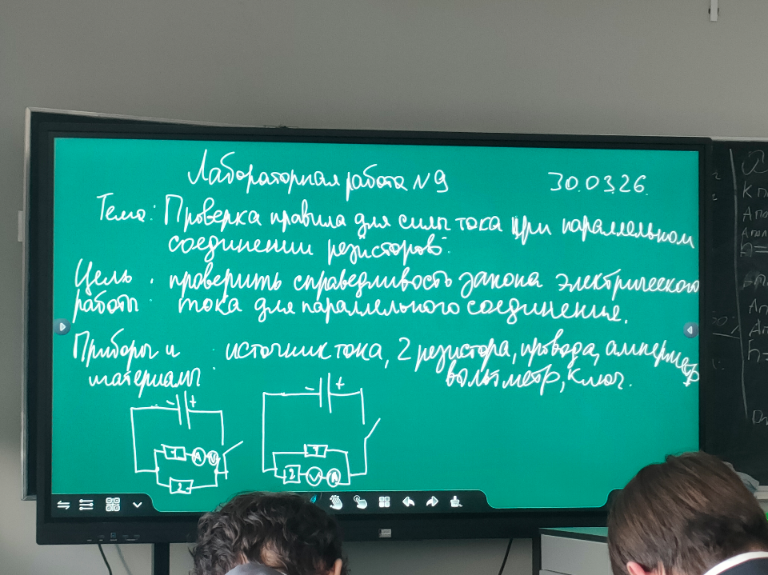 Лабораторная работа №9 30.03.26.
Тема: Проверка правила для силы тока при параллельном
соединении резисторов.
Цель работы: проверить справедливость закона электрического
тока для параллельного соединение.
Приборы и материалы: источник тока, 2 резистора, провода, амперметр,
вольтметр, ключ.
- +
- +
1 A V
1
2
2 V A